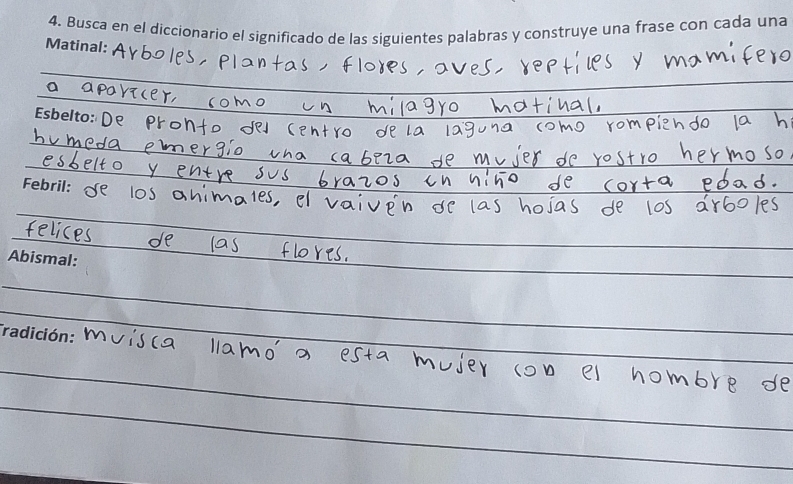 4. Busca en el diccionario el significado de las siguientes palabras y construye una frase con cada una
Matinal: Arboles, plantas, flores, aves, reptiles y mamifero
a aparicer, como un milagro matinal.
Esbelto: De pronto del centro de la laguna como rompiendo la h
humeda emergio una cabeza de mujer de rostro hermoso,
esbelto y entre sus brazos un niño de corta edad.
Febril: de los animales, el vaivén de las hojas de los árboles
felices de las flores.
Abismal:
Tradición: muisca llamó a esta mujer con el nombre de